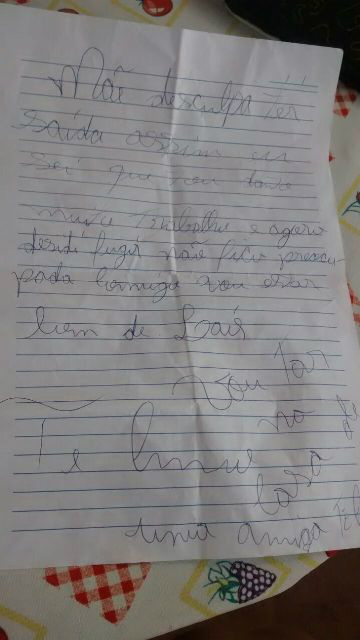 Mãe desculpa ter
saida assim eu
sei que vou
muito trabalho e agora
desidi fugi não fica preocu-
pada comigo vou estar
bem de Lais
Vou tar
na
Te
casa
uma amiga